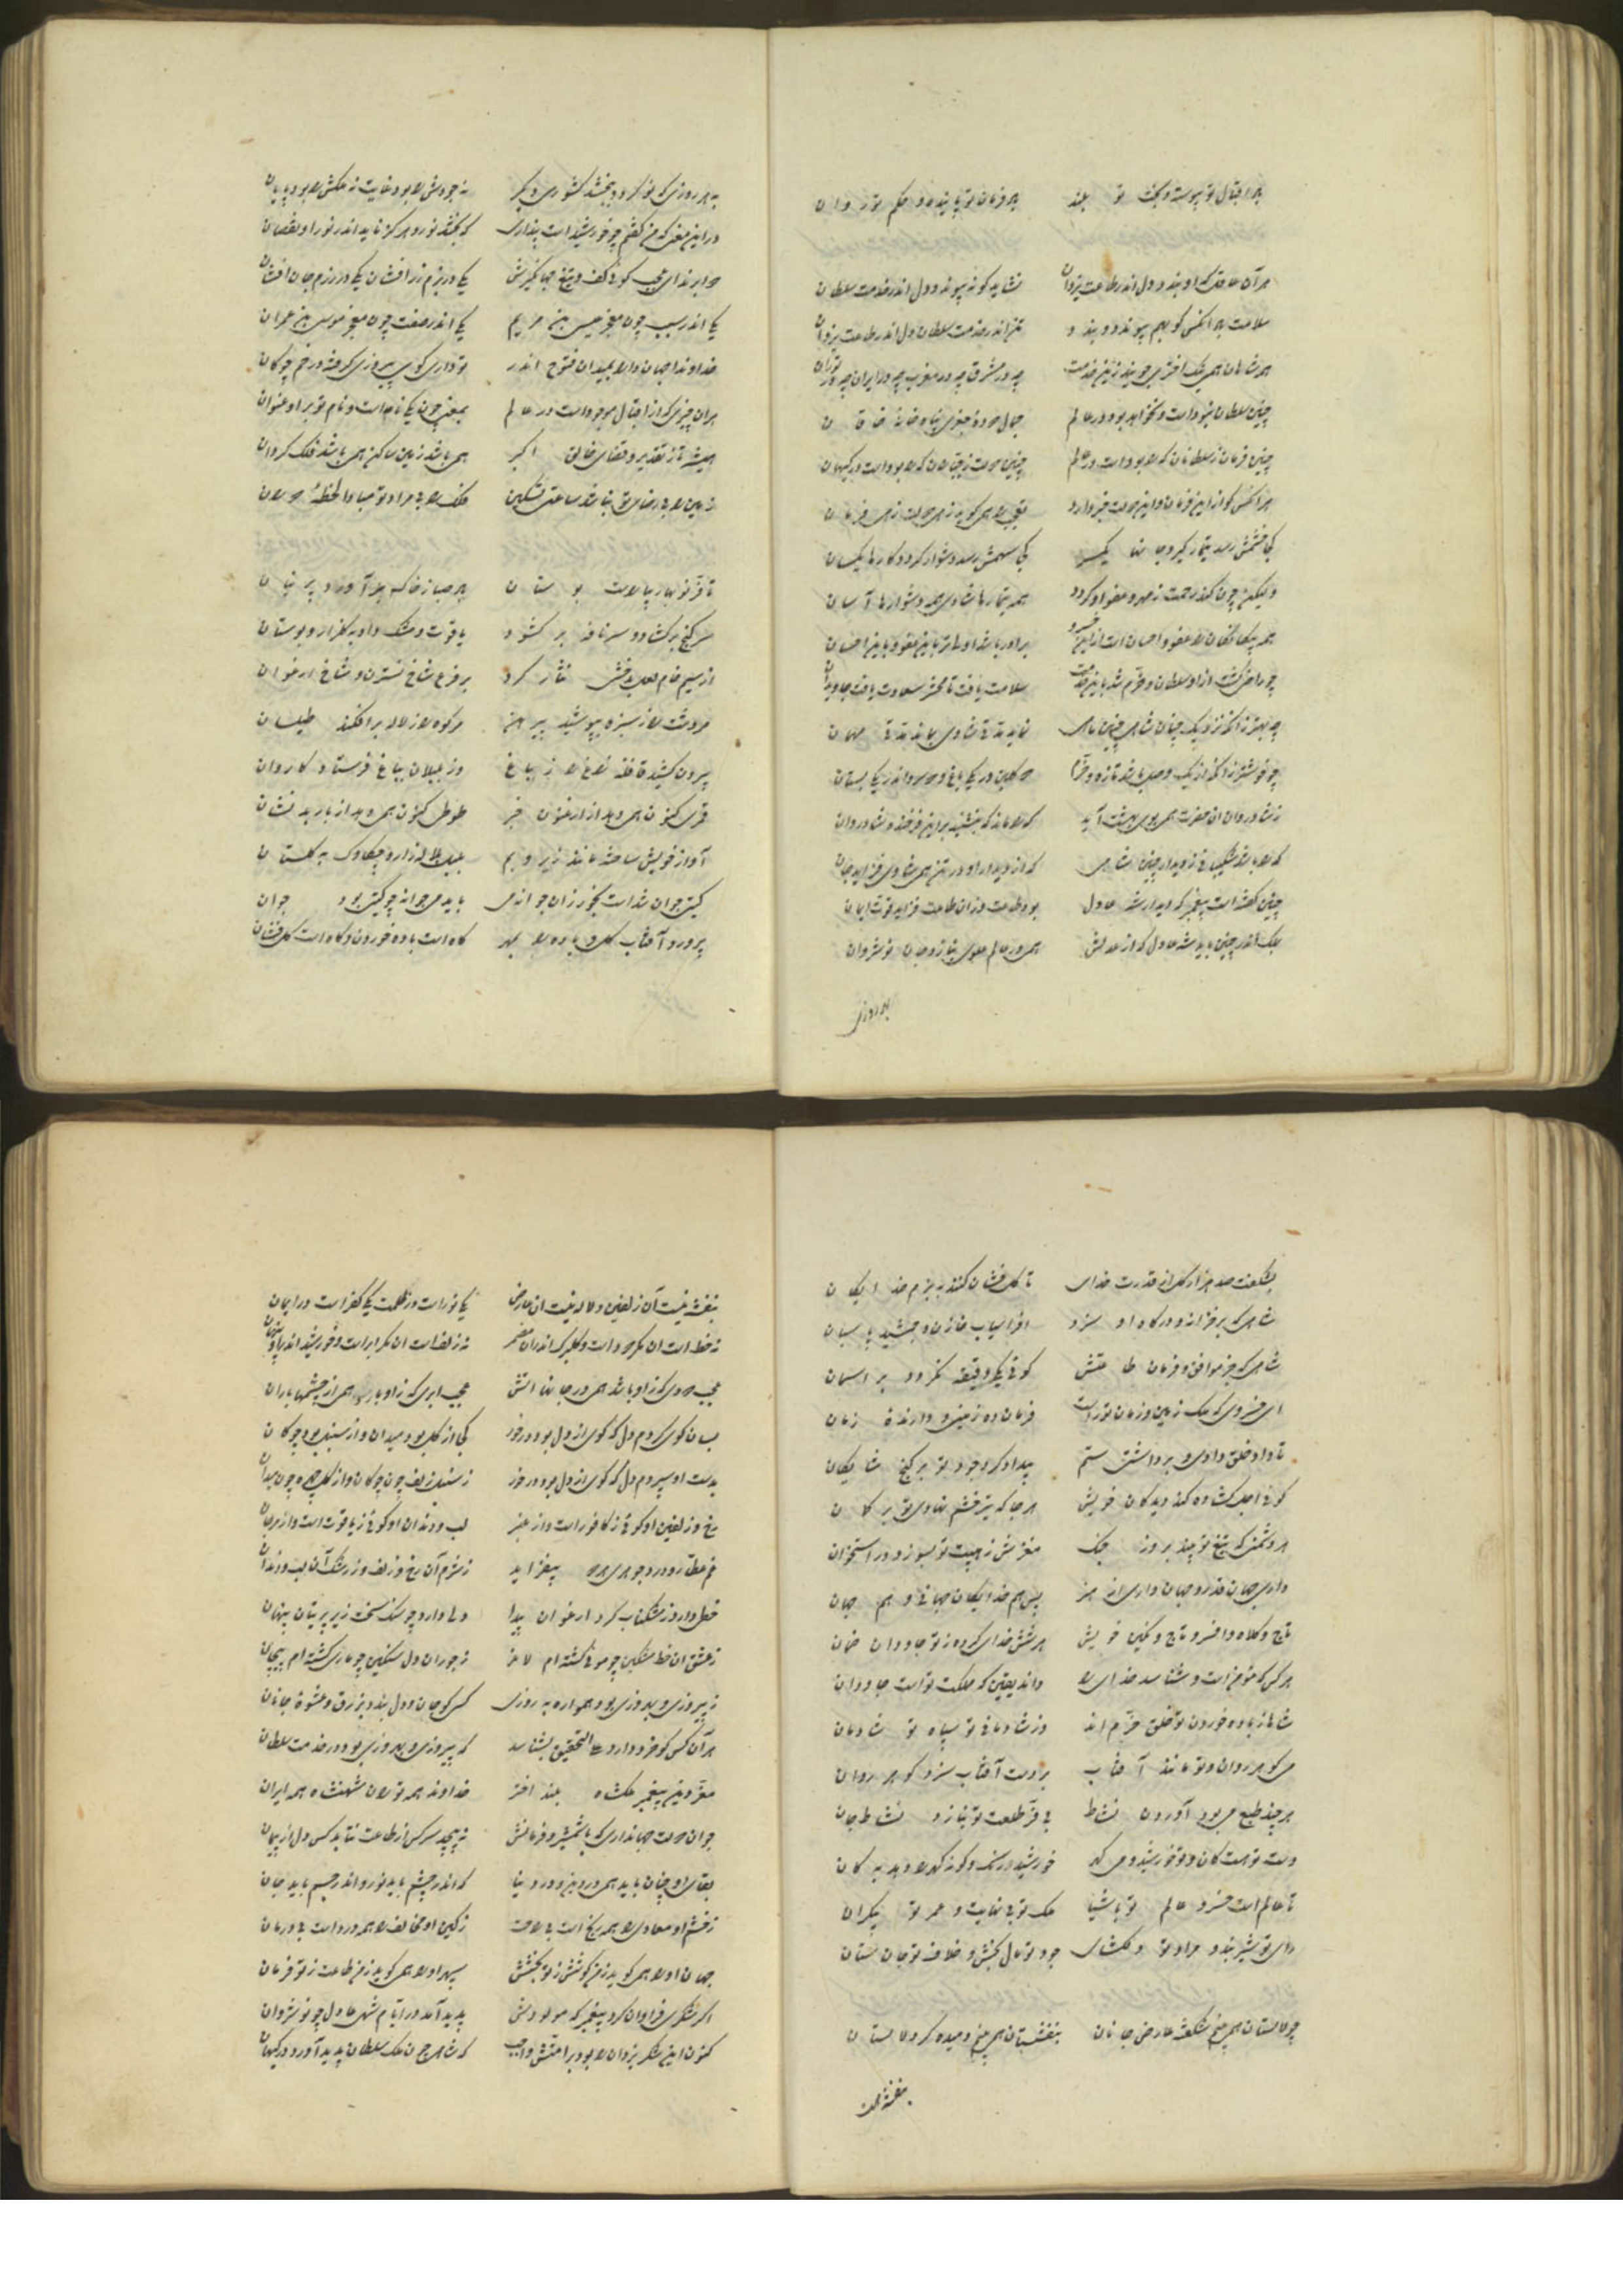 هم اقبال تو پیوسته و بخت تو بلند هم فرمان تو پاینده و حکم تو روان
هر آن عاقل که او بندد دل اندر طاعت یزدان نشاید کو نپیوندد دل اندر خدمت سلطان
سلامت هر آنکس کو بهم پیوندد و بندد تن اندر خدمت سلطان دل اندر طاعت یزدان
همه شاهان همی نیک اختری جویند زین خدمت چه در مشرق چه در مغرب چه در ایران چه در توران
چنین سلطان نبوداست و نخواهد بود در عالم جمال دوده جغری پناه خانه خاقان
چنین فرمان ز سلطانان که را بوداست در عالم چنین دولت ز خاقانان که را بوداست در کیهان
هر آنکس کو از این فرمان و این دولت خبر دارد تعجب را همی گوید زهی دولت زهی فرمان
کجا خشمش رسد تیمار گیرد جانها یکسر کجا سهمش رسد دشوار گردد کارها یکسان
ولیکن چون کند رحمت ز مهر و عفو او گردد همه تیمارها شادی همه دشوارها آسان
همه بیگانگان را عفو و احسان است ازین خسرو برادر باشد اولیتر باین عفو و باین احسان
چو راضی گشت ازو سلطان و خرم شد باین خدمت سلامت یافت تا محشر سعادت یافت جاویدان
چه بهتر زانکه نزدیک چنان شاهی چنین ماهی نماید بندگی شادی بماند مدتی مهمان
چه خوشتر زانکه از نیک وصل باشد تازه و خرم دو گلبن در یکی باغ و دو سرو اندر یکی بستان
ز شادروان آن حضرت همی بوی بهشت آید که را ماند که بنشیند براین فرخنده شادروان
که را باشد شکیبائی ز دیدار چنین شاهی که از دیدار او در تن همی شادی فزاید جان
چنین گفته است پیغمبر که دیدار شه عادل بود طاعت وزان طاعت فزاید قوت ایمان
ملک اندر چنین باید شه عادل که از عدلش همی در عالم علوی بنازد جان نوشروان
بهر روزی
به هر روزی که نو گردد ببخشد کشوری دیگر نه جودش را بود غایت نه ملکش را بود پایان
در این معنی که من گفتم چو خورشید است پنداری که بخشد نور و هرگز ناید اندر نور او نقصان
دو ابرند ای عجب گوئی کف و تیغ جهانگیرش یکی در بزم زرافشان یکی در رزم جان افشان
یکی اندر سبب چون معجز عیسی بن مریم یکی اندر صفت چون معجز موسی بن عمران
خداوندا جهان دارا بمیدان فتوح اندر تو داری گوی پیروزی گرفته در خم چوگان
هر آن چیزی که از اقبال موجود است در عالم بمعنی چون یکی نامه است و نام تو بر او عنوان
همیشه تا ز تقدیر و قضای خالق اکبر همی باشد زمین ساکن همی باشد فلک گردان
زمین را بی رضای تو نباشد ساعتی تسکین فلک را بی مراد تو مبادا لحظهٔ دوران
تا فر نوبهار بیاراست بوستان باد صبا ز خاک برآورد پرنیان
سر گنج برگشاد و سر نافه برگشود یاقوت و مشک داد به گلزار و بوستان
از سیم خام لعل بدخشی نثار کرد بر فرع شاخ نسترن و شاخ ارغوان
مر دشت را ز سبزه بپوشید پیرهن مر کوه را ز لاله برافکند طیلسان
بیرون کشید قافله زاغ را ز باغ وز بلبلان بباغ فرستاد کاروان
قمری کنون همی دهد از ارغنون خبر طوطی کنون همی دهد از باربد نشان
آواز خویش ساخته مانند زیر و بم بلبل به لاله زار و چکاوک به گلستان
گیتی جوان شداست بخور زان جوانه می باید می جوانه چو گیتی بود جوان
پرورد آفتاب گل و باده را بمهر گاه است باده خوردن و گاه است گل فشان
بشکفت صد هزار گل از قدرت خدای تا گل فشان کنند به بزم خدایگان
شاهی که بر خزانه و درگاه او سزد افراسیاب خازن و جمشید پاسبان
شاهی که جز موافق فرمان طاعتش گوئی یکی دقیقه نگردد بر آسمان
ای خسروی که ملک زمین و زمان تو راست فرمان ده زمینی و دارندهٔ زمان
تا داد خلق دادی و برداشتی ستم بیداد کرد جود تو بر گنج شایگان
گوئی اجل گشاده کند دیدگان خویش هر جا که تیر خشم نهادی تو بر کمان
هر دشمنی که تیغ تو بیند بروز جنگ مغزش ز هیبت تو بسوزد در استخوان
داری جهان قدر و جهان داری از هنر پس هم خدایگان جهانی و هم جهان
تاج و کلاه و افسر و تاج و نگین خویش هر شش خدای کرده ز تو جاودان ضمان
هر کس که مؤمن است و شناسد خدای را داند یقین که ملکت تو است جاودان
شاها ز باده خوردن تو خلق خرم اند وز شادمانی تو سپاه تو شادمان
می گوهر روان و تو مانند آفتاب بر دست آفتاب سزد گوهر روان
هر چند طبع می بود آوردن نشاط بی فر طلعت تو نیارد نشاط جان
دست تو هست کان و تو خورشید و می گهر خورشید رنگ و گونه گهر را دهد به کان
تا عالم است خسرو عالم تو باشیا ملک تو بی نهایت و عمر تو بیکران
رای تو شیربند و مراد تو ملکشای جود تو مال بخش و خلاف تو جان ستان
چو لالستان همی بینم شکفته عارض جانان بنفشستان همی بینم دمیده گرد لالستان
بنفشه است
بنفشه نیست آن زلفین و لاله نیست آن عارض یکی نور است در ظلمت یکی کفر است در ایمان
نه خط است آن مگر دود است و گلبرگ اندر آن مضمر نه زلف است آن مگر ابر است و خورشید اندر او پنهان
عجب دودی کزو باشد همی در جانها آتش عجب ابری که زو بارد همی از چشمها باران
بسان گوی کردم دل که گوی از دل بود در خور کجا از گل بود میدان و از سنبل بود چوگان
بدست او سپردم دل که گوی از دل بود در خور ز سنبل زلف چون چوگان و از گل چهره چون میدان
رخ و زلفین او گوئی ز کافور است و از عنبر لب و دندان او گوئی ز یاقوت است و از مرجان
غم عطار و درد جوهری هر دو بیفزاید ز شرم آن رخ و زلف و ز رشک آن لب و دندان
خطی دارد ز مشک ناب گرد ارغوان پیدا دلی دارد چو سنگ سخت زیر پرنیان پنهان
ز عشق آن خط مشکین چو موئی گشته ام لاغر ز جور آن دل سنگین چو ماری گشته ام پیچان
ز پیروزی و بهروزی بود همواره به روزی کسی کو جان و دل بندد بزرق و عشوهٔ جانان
هر آن کس کو خرد دارد علی التحقیق بشناسد که پیروزی و بهروزی بود در خدمت سلطان
معز دین پیغمبر ملکشاه بلند اختر خداوند همه توران شهنشاه همه ایران
جوان دولت جهانداری که با شمشیر و فرمانش نه پیچد سر کس از طاعت نتابد کس دل از پیمان
بقای او چنان باید همی در دین و در دنیا که اندر چشم باید نور و اندر جسم باید جان
ز خشم او معادی را همه رنج است بی راحت ز کین او مخالف را همه درد است بی درمان
جهان او را همی گوید ز من کوشش ز تو بخشش سپهر او را همی گوید ز من طاعت ز تو فرمان
اگر شکری فراوان کرد پیغمبر که مولودش پدید آمد در ایام شهی عادل چو نوشروان
کنون این شکر یزدان را بود بر امتش واجب که شاهی چون ملک سلطان پدید آورد در کیهان